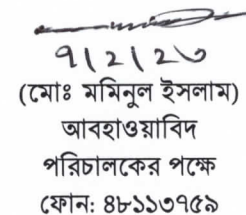 ৭/২/২৩
(মোঃ মমিনুল ইসলাম)
আবহাওয়াবিদ
পরিচালকের পক্ষে
ফোন: ৪৮১১৩৭৫৯